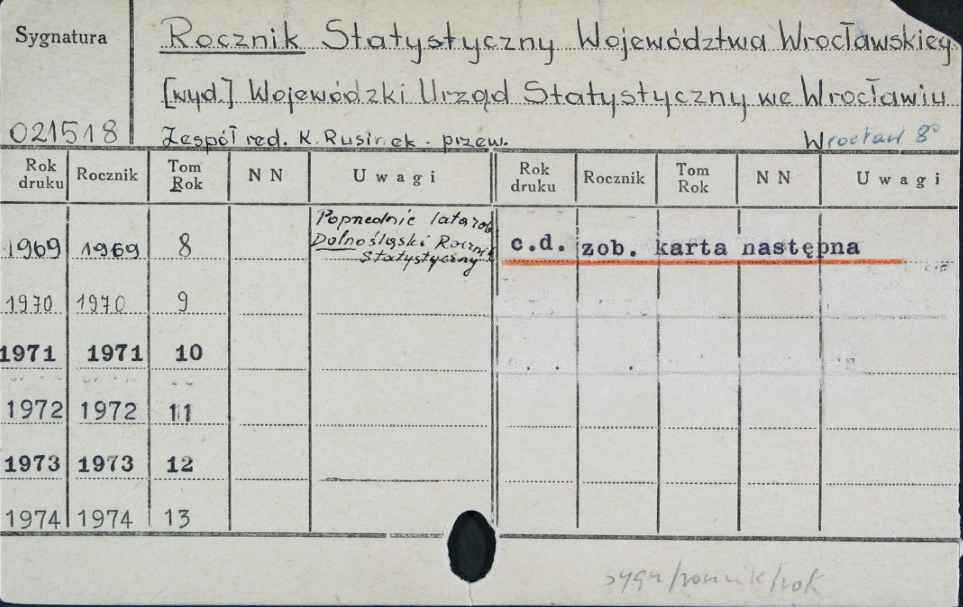 Sygnatura
Rocznik Statystyczny Województwa Wrocławskiej
[wyd.] Wojewódzki Urząd Statystyczny we Wrocławiu
021518
Zespół red. K. Rusinek. przew. Wrocław 8°
Rok druku Rocznik Tom Rok NN Uwagi Rok druku Rocznik Tom Rok NN Uwagi
1969 1969 8 Poprzednie lata zob
Dolnośląski Rocznik
Statystyczny
c.d. zob. karta następna
1970 1970 9
1971 1971 10
1972 1972 11
1973 1973 12
1974 1974 13
sygn/rocznik/rok